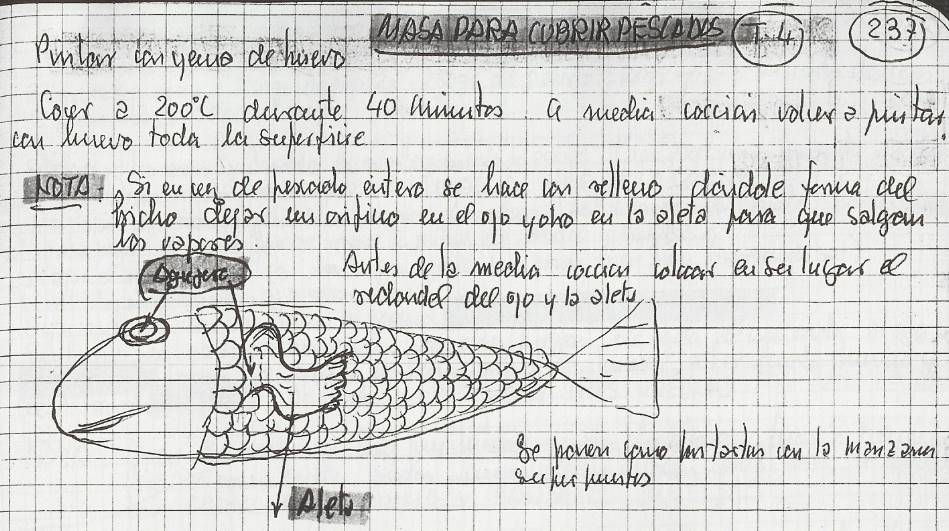 MASA PARA CUBRIR PESCADOS T-4 237
Pintar con yema de huevo
Cocer a 200°C durante 40 minutos. A media coccion volver a pintar
con huevo toda la superficie
NOTA- Si en vez de pescado entero se hace con relleno dándole forma del
bicho dejar un orificio en el ojo y otro en la aleta para que salgan
los vapores.
Agujero
Antes de la media coccion colocar en su lugar el
redondel del ojo y la aleta
Se ponen como las tartas con la manzana
superpuestos
Aleta